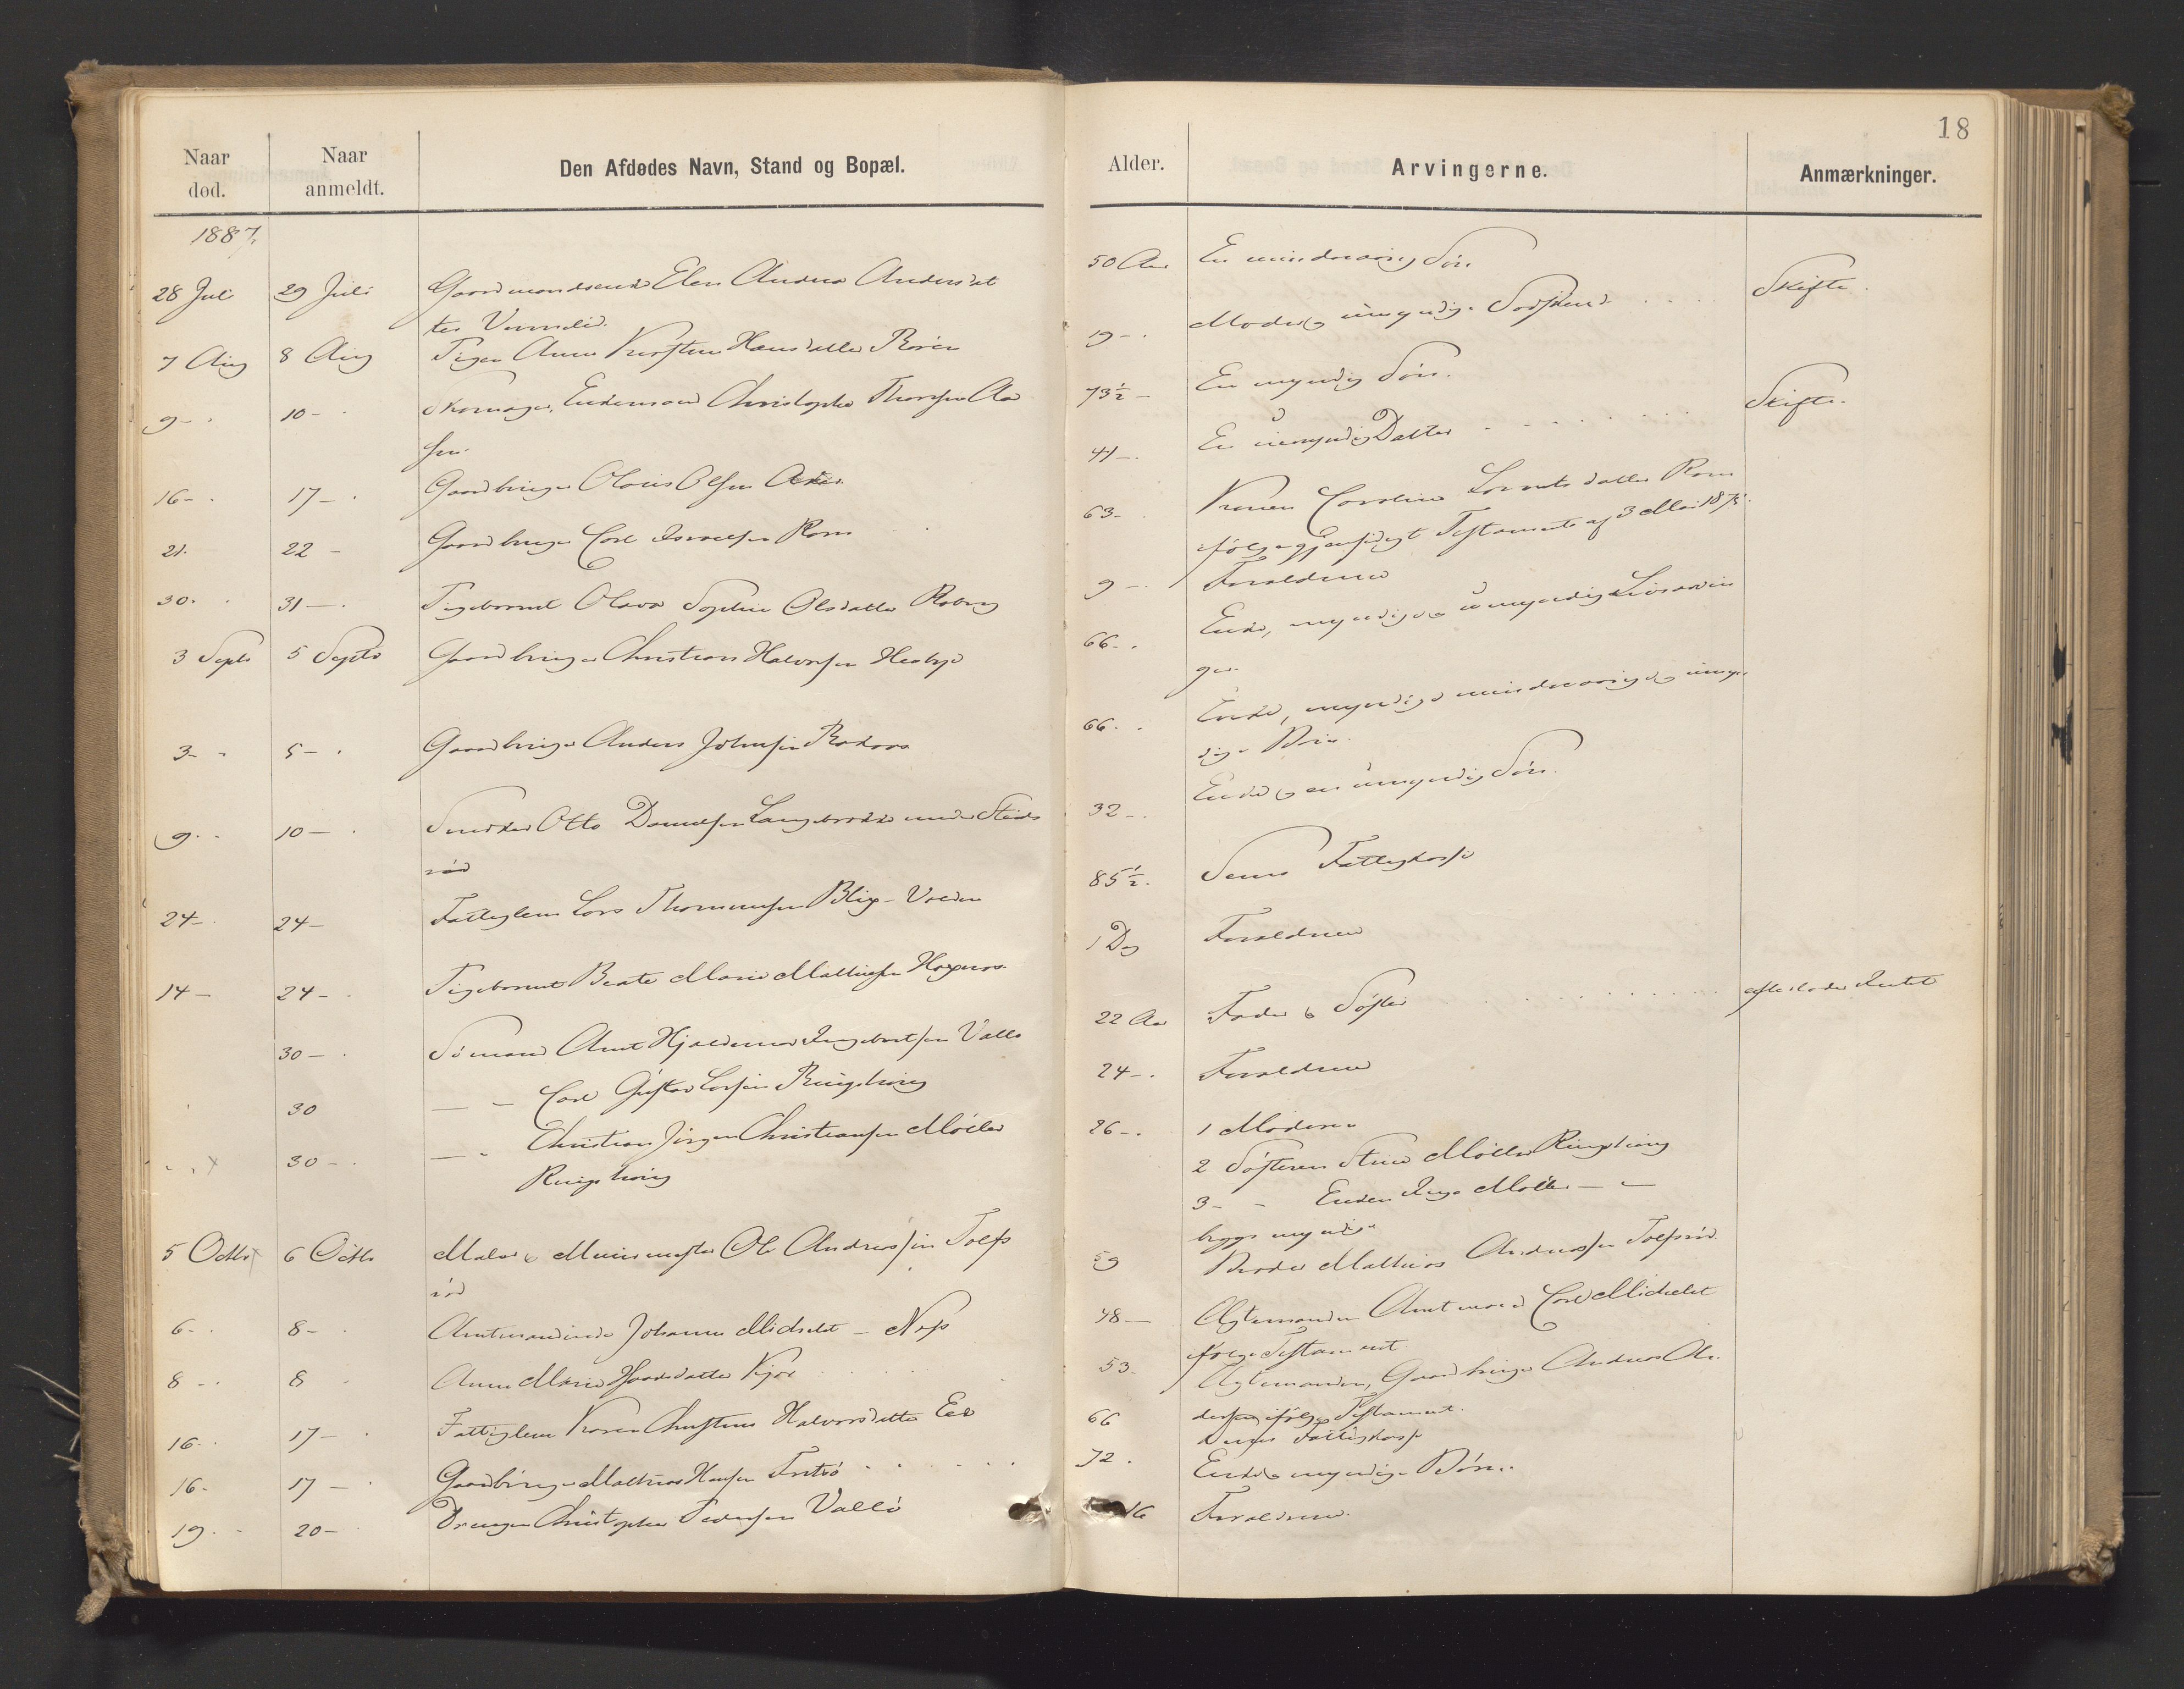 18
Naar død.
Naar anmeldt.
Den Afdødes Navn, Stand og Bopæl.
Alder.
Arvingerne.
Anmærkninger.
1887.
28 Juli 29 Juli Gaardmandsenke Elen Andrea Andersdat
ter 50 Aar En mindreaarig Søn
7 Aug 8 Aug Pigen Anne Kirstine Hansdatter 19 - Moder & umyndige Sødskend Skifte.
9 - 10 - Skomager, Enkemand Christopher Aa
sen 73½ - En myndig Søn.
16 - 17 - Gaardbruger Olaus Olsen Aker 41 - En umyndig Datter Skifte.
21. 22 - Gaardbruger Carl Rom 63 - Konen Caroline Rom
ifølge gjensidigt Testamente af 3 Mai 187
30. 31 - Pigebarnet Olava Sophie Olsdatter Roberg 9 - Forældrene
3 Septb 5 Septb Gaardbruger Christian Halvorsen Heoby 66 - Enke, myndige & umyndige Livsarvin
ger.
3 - 5 - Gaardbruger Anders Johnsen 66 - Enke, myndige mindreaarige & umyn
dige Børn.
9 - 10 - Snedker Otto Danielsen under
rød 32 - Enke & en umyndig Søn.
24 - 24 - Fattiglem Lars Thommesen Blix - Volden 85½. Sems Fattigkasse
14 - 24 - Pigebarnet Beate Marie Mathisen 1 Dag Forældrene
30 - Sømand Anut Hjalmar Ingebretsen Vallø 22 Aar Fader & Søster efterlader Intet
30 — - Carl Gustav Larsen Ringshoug 24 - Forældrene
30 - — - Christian Jørgen Christiansen Møller
Ringshoug 26 - 1 Moderen
2 Søsteren Møller Ringshoug
3 - - Enken Møller — -
begge myndige
5 Octbr 6 Octbr Maler & Muurmester Ole Andreassen Tolfs
rød 59 Broder Mathias Andreassen Tolfsrød
6 - 8 - Amtmandinde Johanne Michelet - Næs 48 — Ægtemanden Amtmand Carl Michelet
ifølge Testament
8 - 8 Anne Marie 53 - Ægtemanden, Gaardbruger Andreas An
dersen ifølge Testament.
16 - 17 - Fattiglem Karen Christine Halvorsdatter Eee 66 Sems Fattigkasse
16 - 17 — Gaardbruger Mathias Hansen 72. Enke & myndige Børn.
19 - 20 - Drengen Christopher Pedersen Vallø 16 Forældrene.